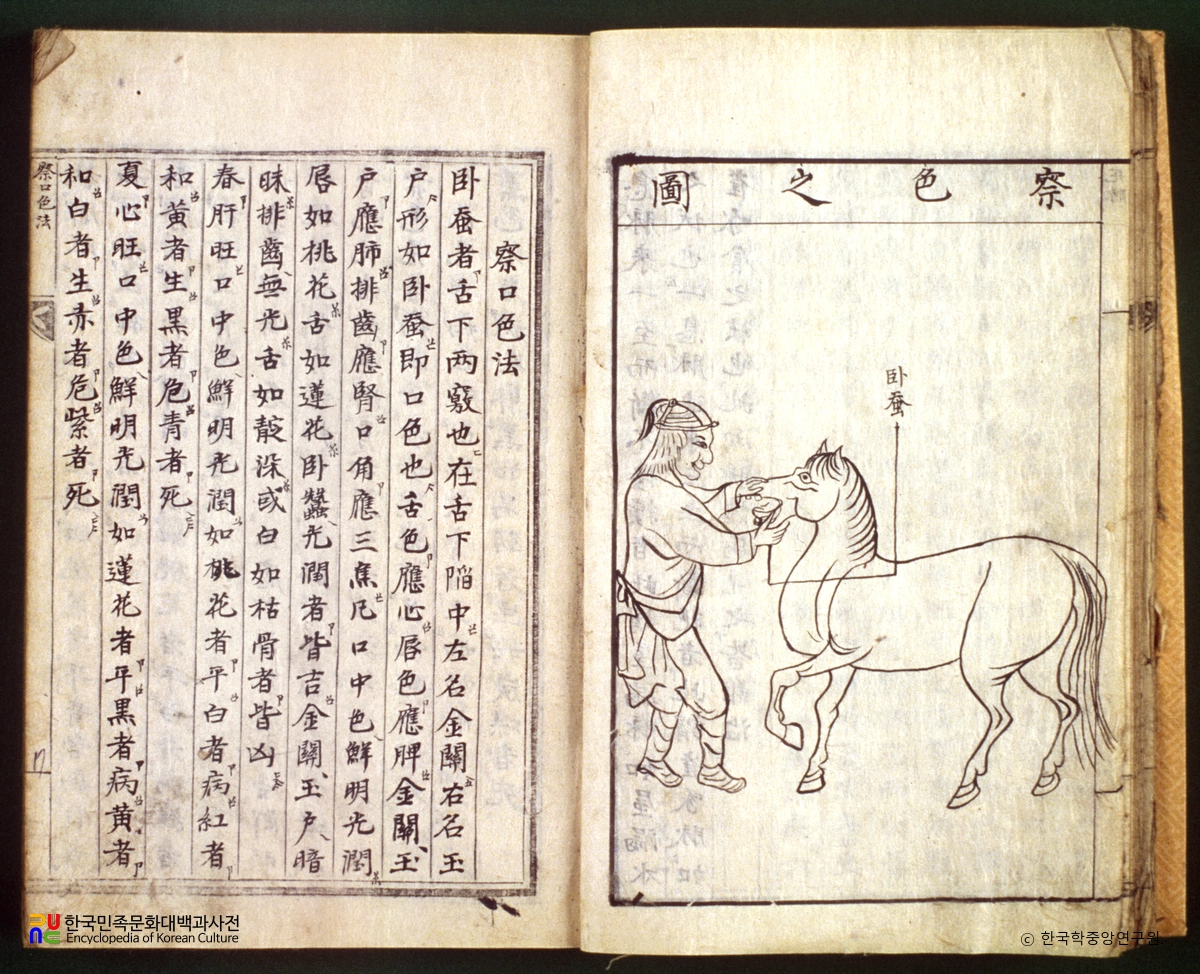 察色之圖
卧蚕
察口色法
卧蚕者舌下两竅也在舌下陷中左名金關右名玉
户形如卧蚕即口色也舌色應心唇色應脾金關玉
户應肺排齒應腎口角應三焦凡口中色鮮明光潤
唇如桃花舌如蓮花卧蠶光潤者皆吉金關玉户暗
昧排齒無光舌如靛深或白如枯骨者皆凶
春肝旺口中色鮮明光潤如桃花者平白者病紅者
和黃者生黑者危青者死
夏心旺口中色鮮明光潤如蓮花者平黑者病黃者
和白者生赤者危紫者死
察口色法
한국민족문화대백과사전
Encyclopedia of Korean Culture
© 한국학중앙연구원